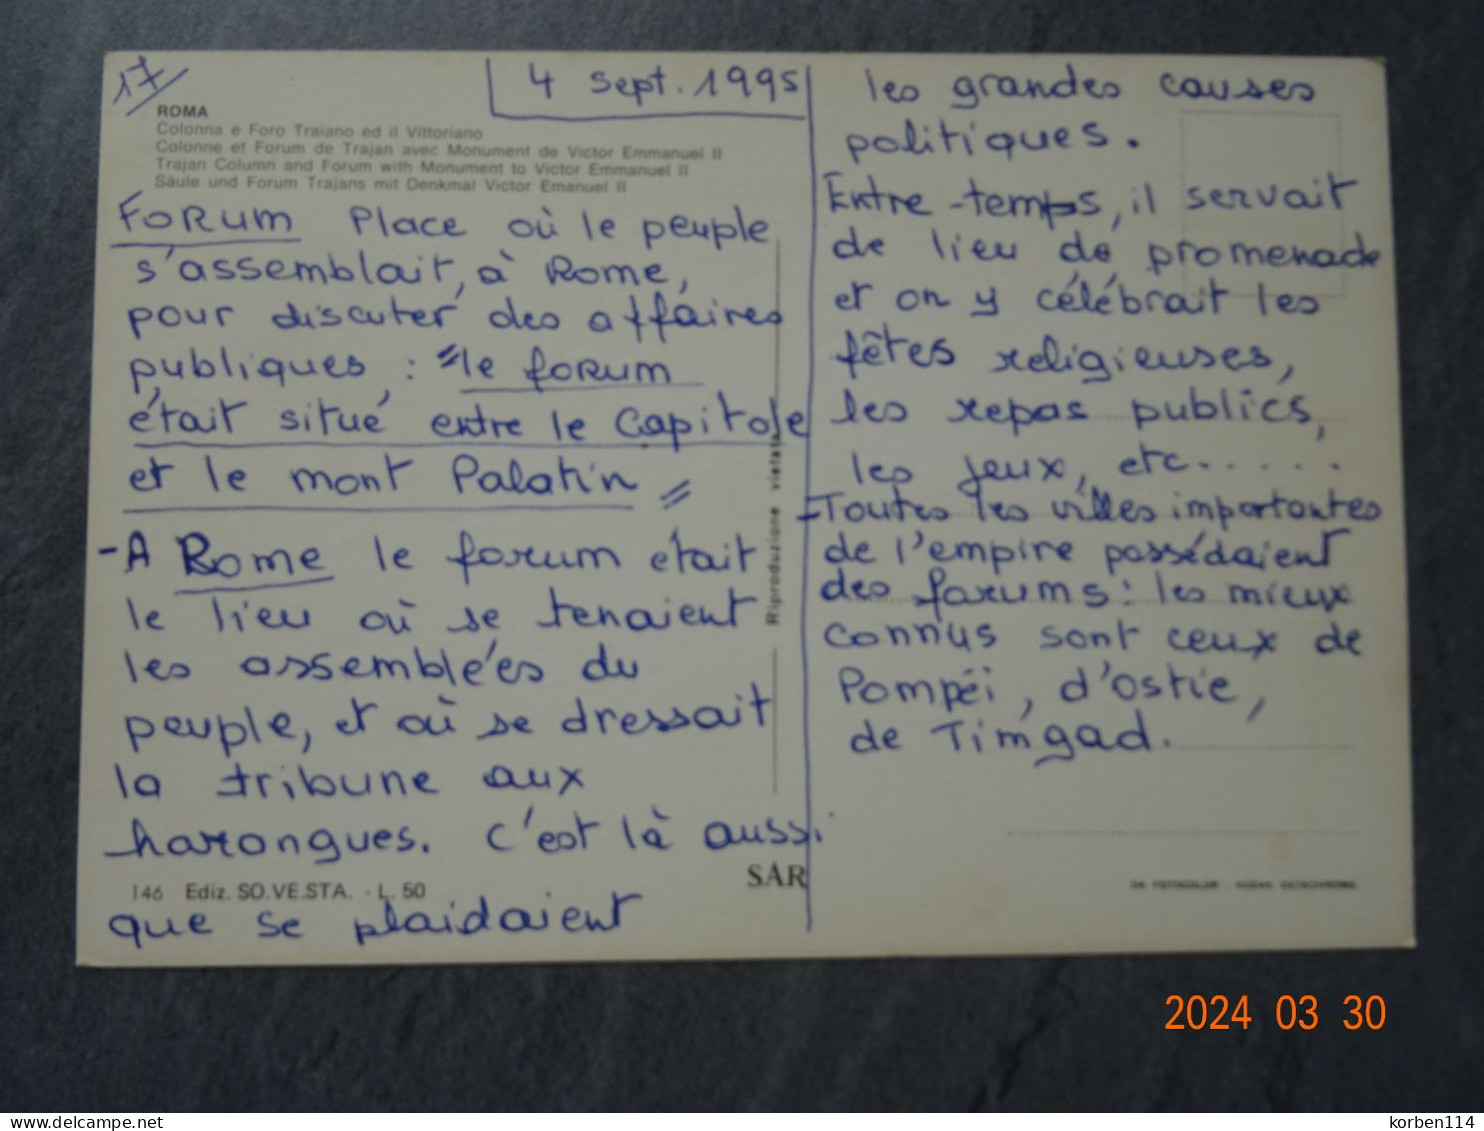 17
4 sept. 1995
ROMA
Colonna e Foro Traiano ed il Vittoriano
Colonne et Forum de Trajan avec Monument de Victor Emmanuel II
Trajan Column and Forum with Monument to Victor Emmanuel II
Säule und Forum Trajans mit Denkmal Victor Emanuel II
FORUM Place où le peuple
s'assemblait, à Rome,
pour discuter des affaires
publiques : "le forum
était situé entre le Capitole
et le mont Palatin"
- A Rome le forum était
le lieu où se tenaient
les assemblées du
peuple, et où se dressait
la tribune aux
harangues. C'est là aussi
146 Ediz. SO.VE.STA. - L. 50
que se plaidaient
Riproduzione vietata
SAR
les grandes causes
politiques.
Entre-temps, il servait
de lieu de promenade
et on y célébrait les
fêtes religieuses,
les repas publics,
les jeux, etc.....
- Toutes les villes importantes
de l'empire possédaient
des forums : les mieux
connus sont ceux de
Pompéi, d'Ostie,
de Timgad.
FOTOCOLOR KODAK EKTACHROME
2024 03 30
delcampe.net
korben114